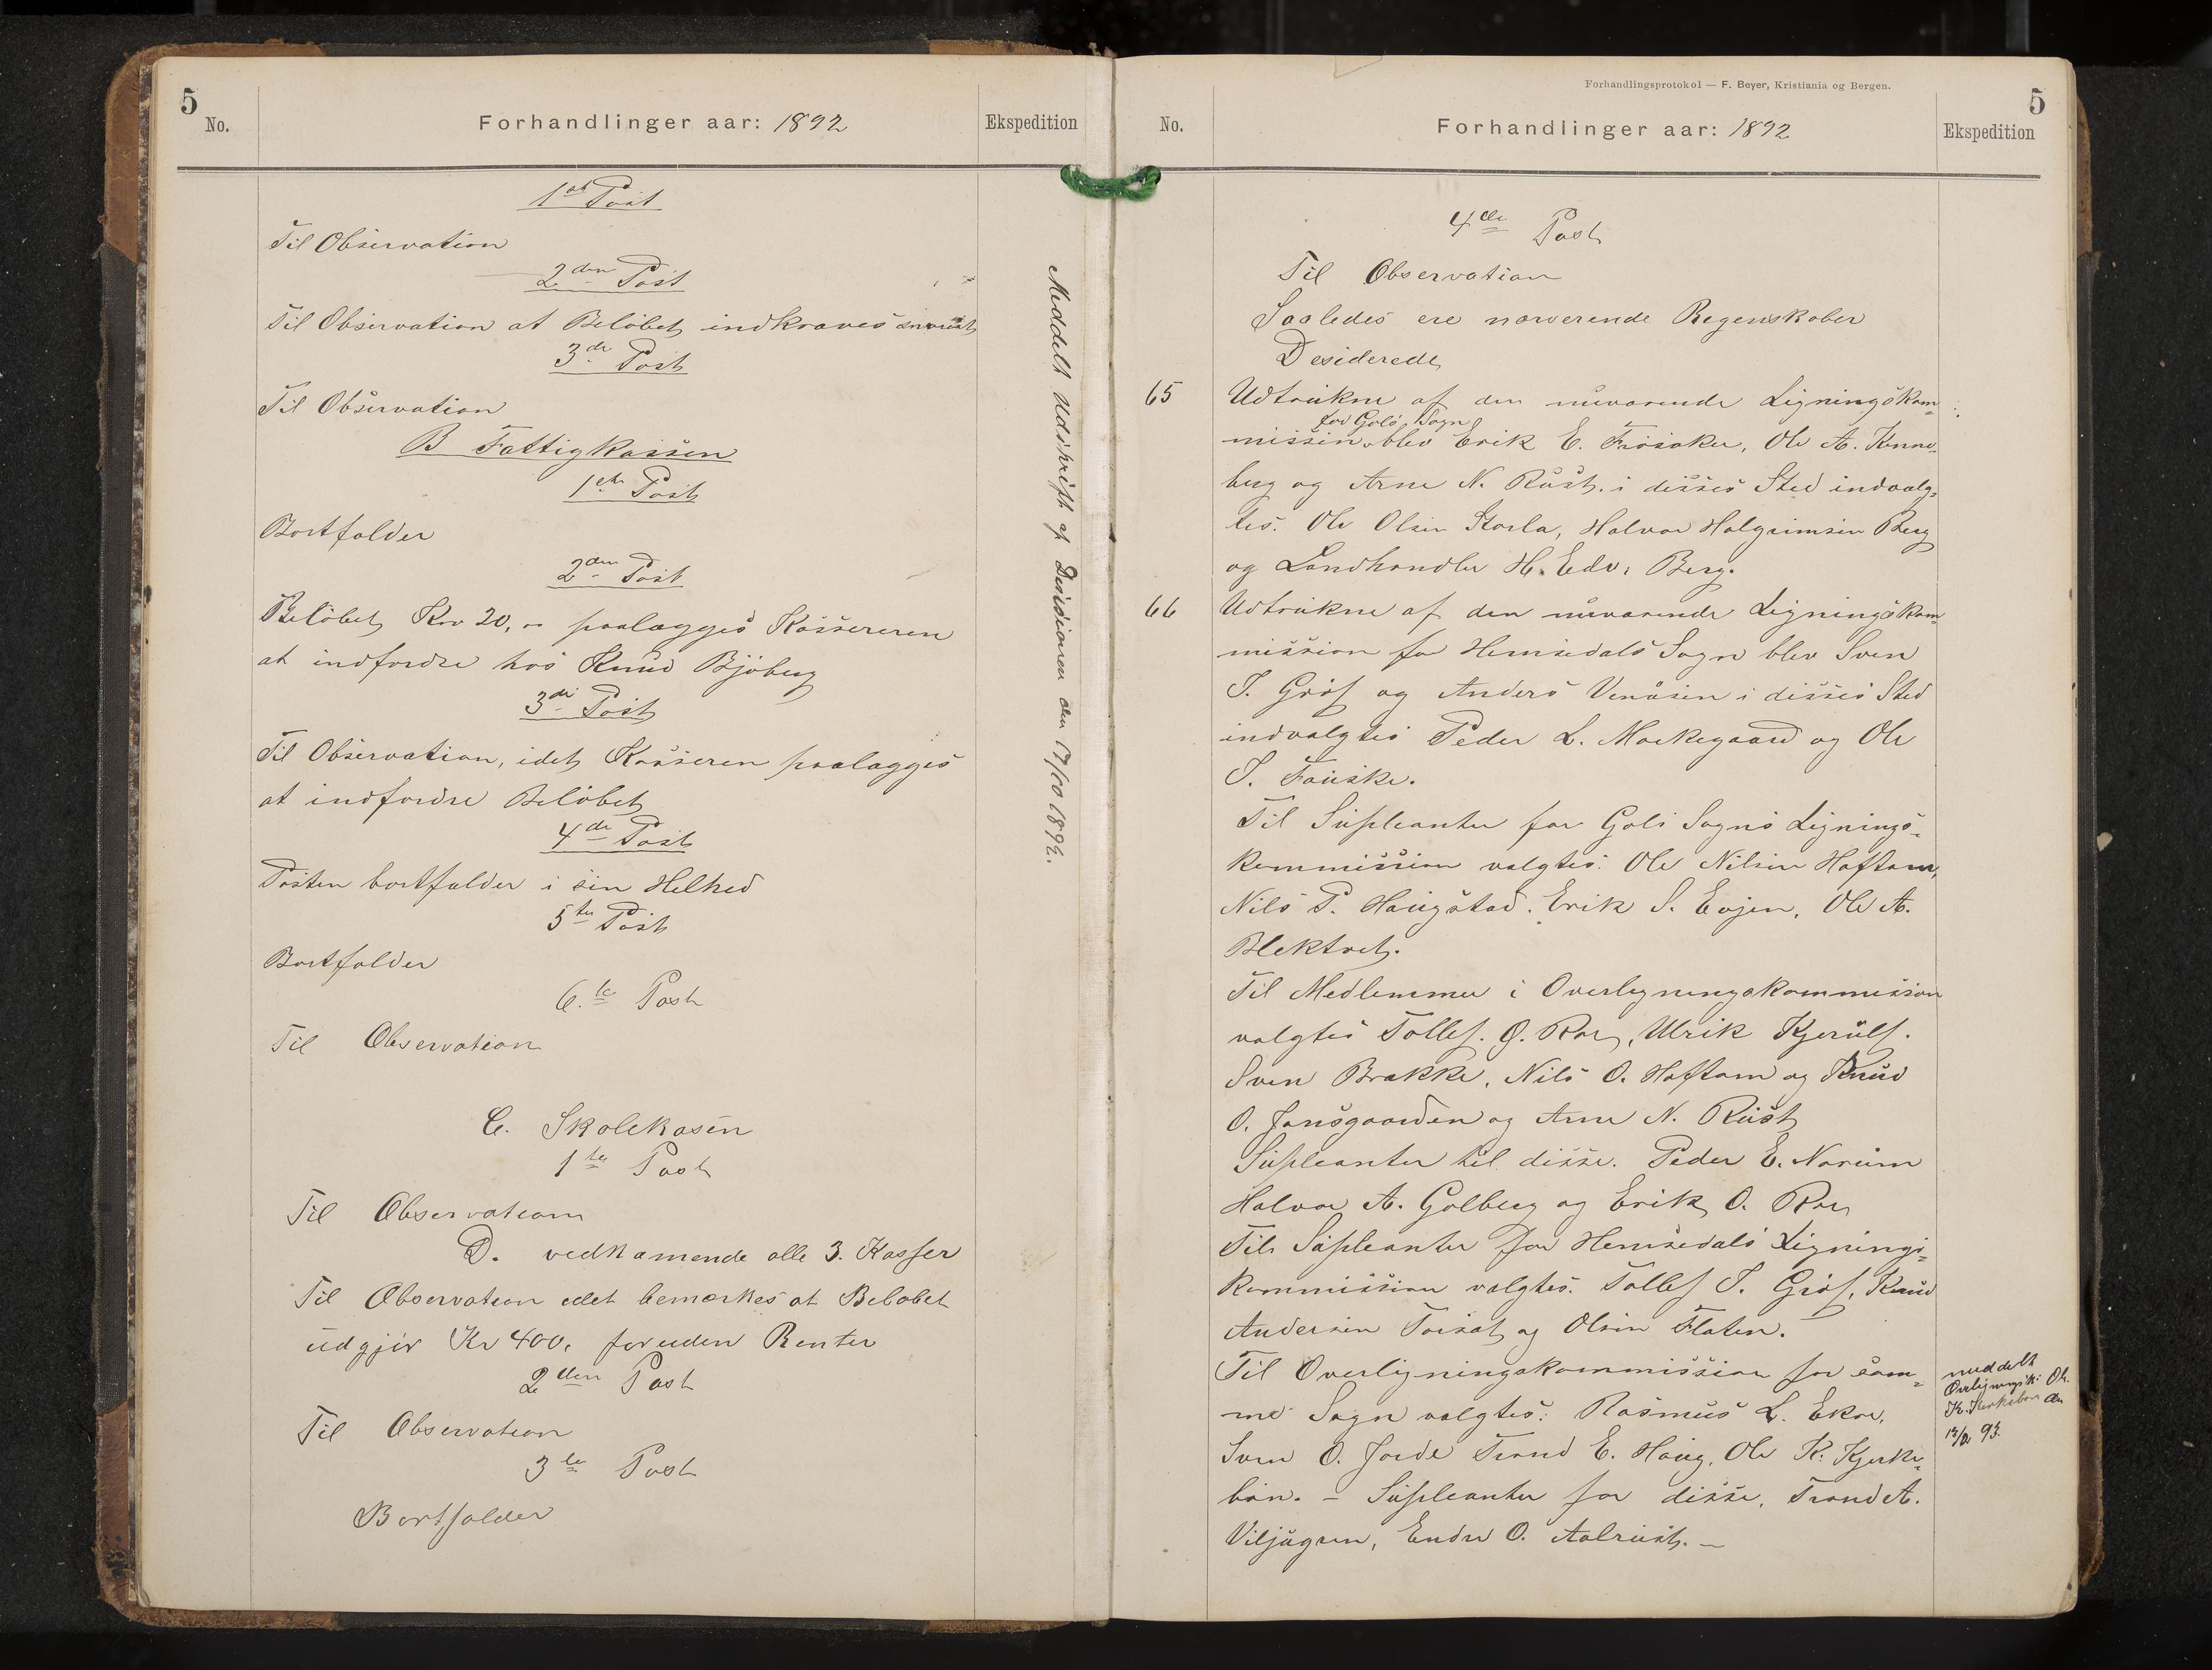 5
No.
Forhandlinger aar: 1892
Ekspedition
1ste Post
Til Observation
2den Post
Til Observation at Beløbet indkræves snarest
3die Post
Til Observation
B Fattigkassen
1ste Post
Bortfalder
2den Post
Beløbet Kr 20,00 paalægges Kassereren
at indfordre hos Knud Bjøberg
3die Post
Til Observation, idet Kasseren paalægges
at indfordre Beløbet
4de Post
Posten bortfalder i sin Helhed
5te Post
Bortfalder
6.te Post
Til Observation
C. Skolekasen
1ste Post
Til Observation
D. vedkamende alle 3. Kasser
Til Observation idet bemærkes at Beløbet
udgjør Kr 400, foruden Renter
2den Post
Til Observation
3die Post
Bortfalder
Meddelt Udskrift af Decisionen den 17/10 1892.
Forhandlingsprotokol — F. Beyer, Kristiania og Bergen.
5
No.
Forhandlinger aar: 1892
Ekspedition
4de Post
Til Observation
Saaledes ere nærværende Regenskaber
Desiderede
65 Udtrukne af den nuværende Ligningskom=
for Gols Sogn
mission blev Erik E. Frøsaker, Ole A. Kinne=
berg og Arne N. Rust, i disses Sted indvalg=
tes. Ole Olsen Storla, Halvor Halgrimsen Berg
og Landhandler H. Edv. Berg.
66 Udtrukne af den nuværende Ligningskom=
mission for Hemsedals Sogn blev Sven
T. Grøf og Anders Venåsen i disses Sted
indvalgtes Peder L. Markegaard og Ole
T. Fauske.
Til Supleanter for Gols Sogns Lignings=
kommission valgtes: Ole Nilsen Haftorn,
Nils P. Haugstad. Erik S. Evjen, Ole A.
Blektvet.
Til Medlemmer i Overligningskommission
valgtes Tollef. O. Roe, Ulrik Kjerulf.
Sven Brakke, Nils O. Haftorn og Knud
O. Jonsgaarden og Arne N. Rust
Supleanter til disse. Peder E. Norum
Halvor A. Golberg og Erik O. Roe
Til Supleanter for Hemsedals Lignings=
kommission valgtes. Tollef T. Grøf, Knud
Andersen Torset og Olsen Flaten.
Til Overligningskommission for sam=
me Sogn valgtes: Rasmus L. Ekre,
Sven O. Jorde Trond E. Haug, Ole K. Kjerke=
bøn. – Supleanter for disse, Trond A.
Viljugrein, Endre O. Aalrust. –
meddelt
Overligningsk: Ole
K. Kirkebøn den
13/2 93.